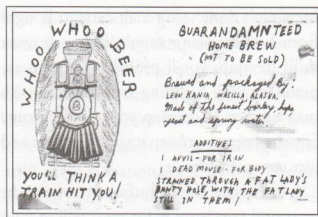 WHOO WHOO BEER
YOU'LL THINK A
TRAIN HIT YOU!
GUARANDAMNTEED
HOME BREW
(NOT TO BE SOLD)
Brewed and packaged by:
LEON KANIA, WASILLA, ALASKA.
Made of the finest barley, hops,
yeast and spring water.
ADDITIVES
1 ANVIL - FOR IRON
1 DEAD MOUSE - FOR BODY
STRAINED THROUGH A FAT LADY'S
PANTY HOSE, WITH THE FAT LADY
STILL IN THEM!